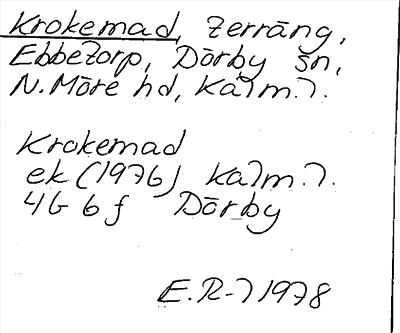 Krokemad, terräng,
Ebbetorp, Dörby sn,
N. Möre hd, Kalm. l.
Krokemad
ek (1976) Kalm. l.
4G 6 f Dörby
E.R-l 1978